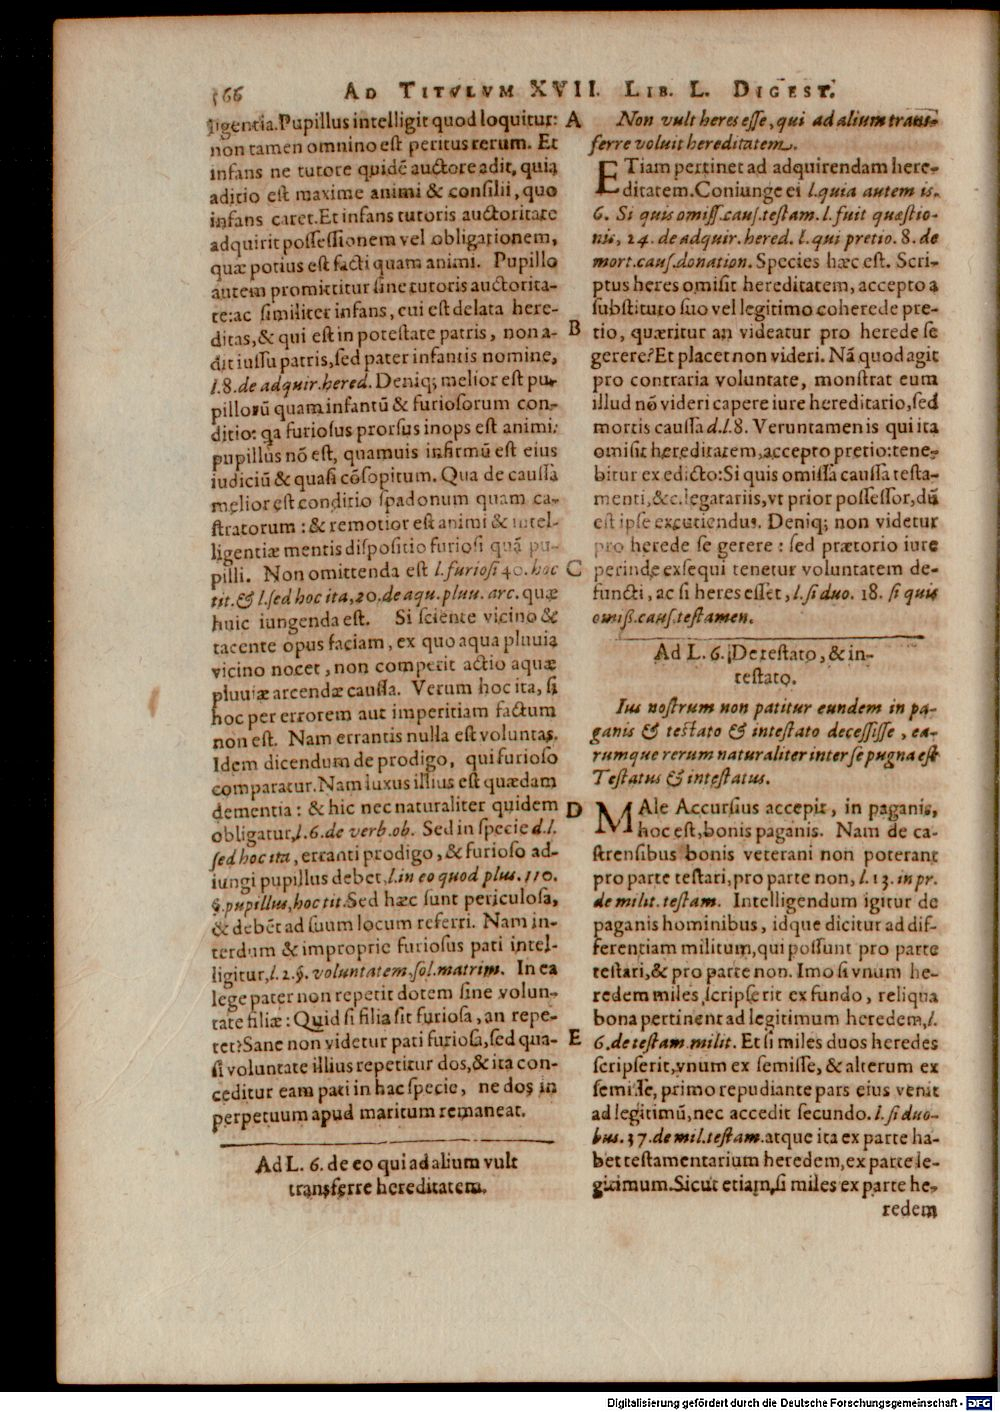 566 AD TITVLVM XVII. LIB. L. DIGEST.
ligentia. Pupillus intelligit quod loquitur:
non tamen omnino est peritus rerum. Et
infans ne tutore quidẽ auctore adit, quia
aditio est maxime animi & consilii, quo
infans caret. Et infans tutoris auctoritate
adquirit possessionem vel obligationem,
quæ potius est facti quam animi. Pupillo
autem promittitur sine tutoris auctorita-
te: ac similiter infans, cui est delata here-
ditas, & qui est in potestate patris, non a-
dit iussu patris, sed pater infantis nomine,
l. 8. de adquir. hered. Deniq; melior est pu-
pillorũ quam infantũ & furiosorum con-
ditio: qa furiosus prorsus inops est animi:
pupillus nõ est, quamuis infirmũ est eius
iudiciũ & quasi cõsopitum. Qua de caussa
melior est conditio spadonum quam ca-
stratorum: & remotior est animi & intel-
ligentiæ mentis dispositio furiosi quã pu-
pilli. Non omittenda est l. furiosi 40. hoc
tit. & l. sed hoc ita, 20. de aqu. pluu. arc. quæ
huic iungenda est. Si sciente vicino &
tacente opus faciam, ex quo aqua pluuia
vicino nocet, non competit actio aquæ
pluuiæ arcendæ caussa. Verum hoc ita, si
hoc per errorem aut imperitiam factum
non est. Nam errantis nulla est voluntas.
Idem dicendum de prodigo, qui furioso
comparatur. Nam luxus illius est quædam
dementia: & hic nec naturaliter quidem
obligatur, l. 6. de verb. ob. Sed in specie d. l.
sed hoc ita, erranti prodigo, & furioso ad-
iungi pupillus debet, l. in eo quod plus. 110.
§. pupillus, hoc tit. Sed hæc sunt periculosa,
& debẽt ad suum locum referri. Nam in-
terdum & improprie furiosus pati intel-
ligitur, l. 2. §. voluntatem, sol. matrim. In ea
lege pater non repetit dotem sine volun-
tate filiæ: Quid si filia sit furiosa, an repe-
tet? Sane non videtur pati furiosa, sed qua-
si voluntate illius repetitur dos, & ita con-
ceditur eam pati in hac specie, ne dos in
perpetuum apud maritum remaneat.
Ad L. 6. de eo qui ad alium vult
transferre hereditatem.
A
B
C
D
E
Non vult heres esse, qui ad alium trans-
ferre voluit hereditatem.
ETiam pertinet ad adquirendam here-
ditatem. Coniunge ei l. quia autem is.
6. Si quis omiss. caus. testam. l. fuit quæstio-
nis, 24. de adquir. hered. l. qui pretio. 8. de
mort. caus. donation. Species hæc est. Scri-
ptus heres omisit hereditatem, accepto a
substituto suo vel legitimo coherede pre-
tio, quæritur an videatur pro herede se
gerere? Et placet non videri. Nã quod agit
pro contraria voluntate, monstrat eum
illud nõ videri capere iure hereditario, sed
mortis caussa d. l. 8. Veruntamen is qui ita
omisit hereditatem, accepto pretio: tene-
bitur ex edicto: Si quis omissa caussa testa-
menti, &c. legatariis, vt prior possessor, dũ
est ipse excutiendus. Deniq; non videtur
pro herede se gerere: sed prætorio iure
perinde exsequi tenetur voluntatem de-
functi, ac si heres esset, l. si duo. 18. si quis
omiss. caus. testamen.
Ad L. 6. ¡De testato, & in-
testato.
Ius nostrum non patitur eundem in pa-
ganis & testato & intestato decessisse, ea-
rumque rerum naturaliter inter se pugna est
Testatus & intestatus.
MAle Accursius accepit, in paganis,
hoc est, bonis paganis. Nam de ca-
strensibus bonis veterani non poterant
pro parte testari, pro parte non, l. 13. in pr.
de milit. testam. Intelligendum igitur de
paganis hominibus, idque dicitur ad dif-
ferentiam militum, qui possunt pro parte
testari, & pro parte non. Imo si vnum he-
redem miles scripserit ex fundo, reliqua
bona pertinent ad legitimum heredem, l.
6. de testam. milit. Et si miles duos heredes
scripserit, vnum ex semisse, & alterum ex
semisse, primo repudiante pars eius venit
ad legitimũ, nec accedit secundo. l. si duo-
bus. 37. de mil. testam. atque ita ex parte ha-
bet testamentarium heredem, ex parte le-
gitimum. Sicut etiam, si miles ex parte he-
redem
Digitalisierung gefördert durch die Deutsche Forschungsgemeinschaft - DFG